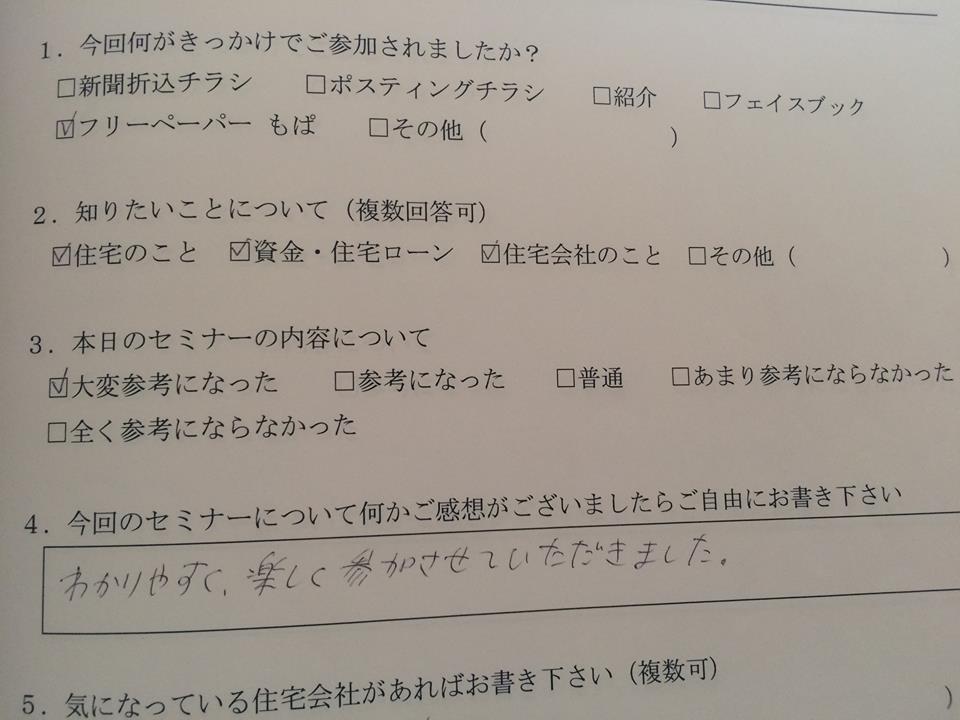 1．今回何がきっかけでご参加されましたか？
□新聞折込チラシ　□ポスティングチラシ　□紹介　□フェイスブック
☑フリーペーパー もぱ　□その他（　　　　　　　）
2．知りたいことについて（複数回答可）
☑住宅のこと　☑資金・住宅ローン　☑住宅会社のこと　□その他（　　　　　　　）
3．本日のセミナーの内容について
☑大変参考になった　□参考になった　□普通　□あまり参考にならなかった
□全く参考にならなかった
4．今回のセミナーについて何かご感想がございましたらご自由にお書き下さい
わかりやすく、楽しく参加させていただきました。
5．気になっている住宅会社があればお書き下さい（複数可）
）